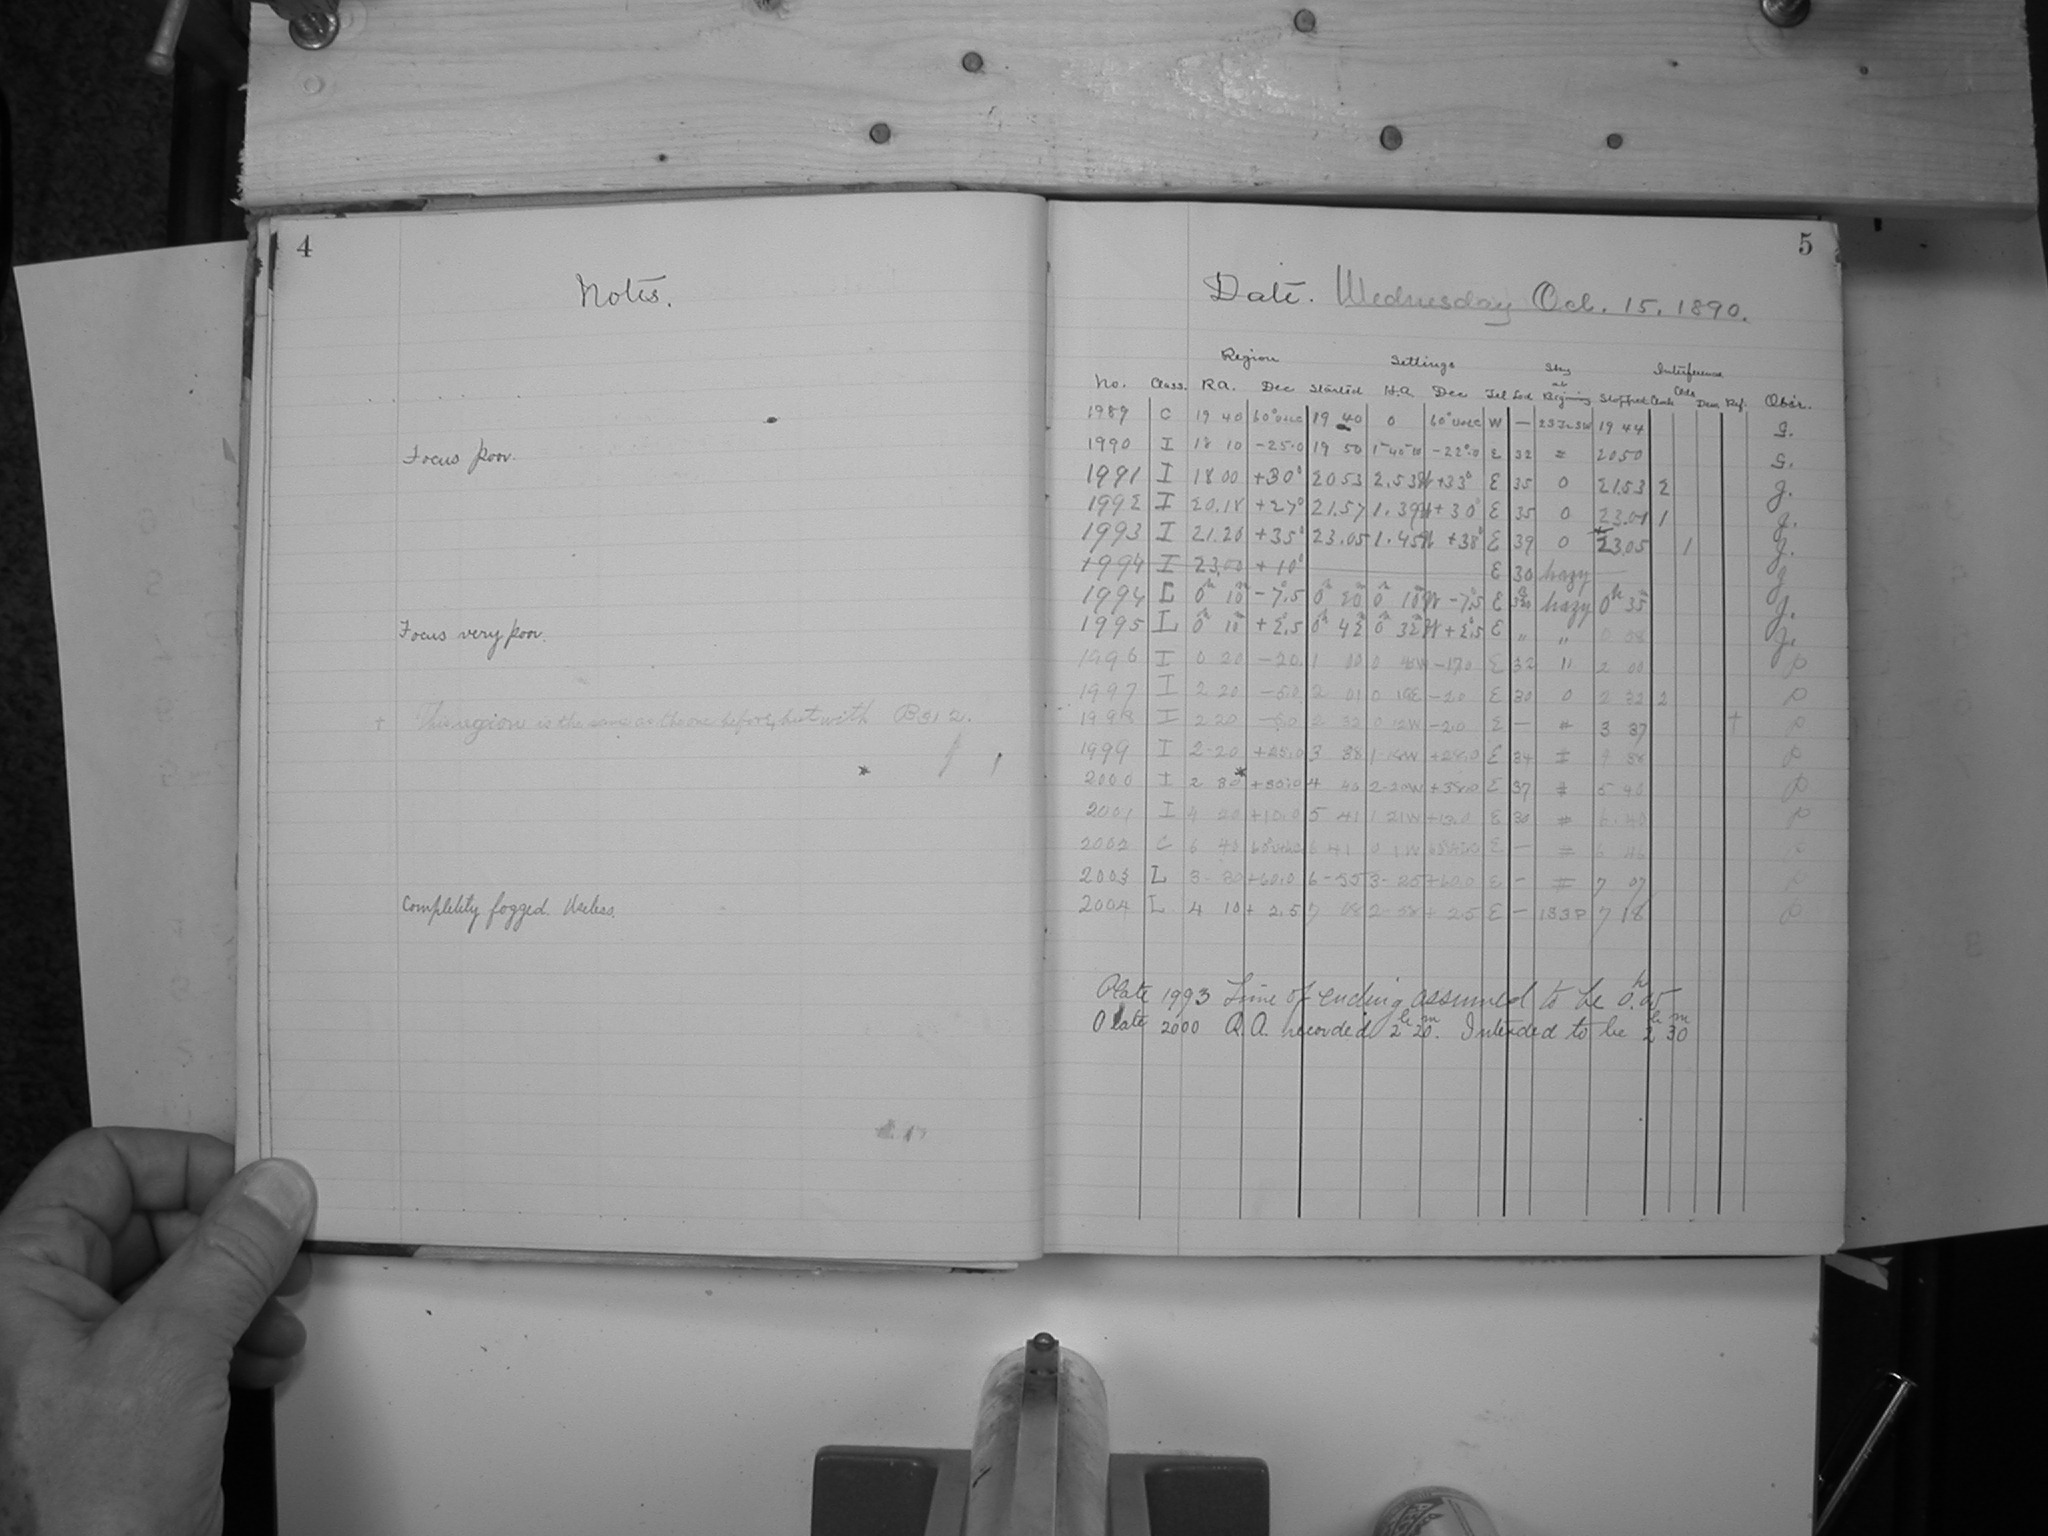 4
Notes.
Focus poor.
Focus very poor.
+ This region is the same as the one before, but with
*
Completely fogged. Useless.
5
Date. Wednesday Oct. 15. 1890.
Region Settings Sky Interference
No. Class. R.A. Dec Started H.A. Dec Tel at Beginning Stopped Clouds Dew Ref. Obsr.
1989 C 19 40 19 40 0 W — 19 44 g.
1990 I 18 10 -25.0 19 50 -22°.0 E 32 = 20 50 g.
1991 I 18 00 +30° 20 53 2.53W +33° E 35 0 21.53 2 g.
1992 I 20.18 +27° 21.57 1.39W +30° E 35 0 23.01 1 g.
1993 I 21.20 +35° 23.05 1.45W +38° E 39 0 23.05 1 g.
1994 I 23.00 +10° E 30 hazy g
1994 L 0h 10m -7°.5 0h 20m 0h 10m W -7°.5 E hazy 0h 35m g.
1995 L 0h 10m +2°.5 0h 42m 0h 32m W +2°.5 E " " g.
1996 I 0 20 -20. 1 00 0 40W -17.0 E 32 " 2 00 P
1997 I 2 20 -5.0 2 01 0 19E -2.0 E 30 0 2 32 2 P
1998 I 2 20 -5.0 2 32 0 12W -2.0 E — # 3 37 † P
1999 I 2 20 +25.0 3 38 +28.0 E 34 # 4 38 P
2000 I 2 30* 4 40 2-20W E 37 # 5 40 P
2001 I 4 20 +10.0 5 41 1 21W +13.0 E 30 # 6.40 P
2002 C 6 40 6 41 0 1W E — # 6 46 P
2003 L 3- 30 +60.0 6-55 3-25 +60.0 E - # 7 07 P
2004 L 4 10 + 2.5 7 08 2-58 + 2.5 E — 7 18 P
Plate 1993 Time of ending assumed to be
Plate 2000 R.A. recorded 2h 20m. Intended to be 2h 30m